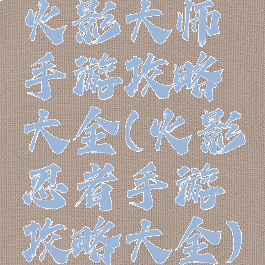 火影大师
手游攻略
大全(火影
忍者手游
攻略大全)